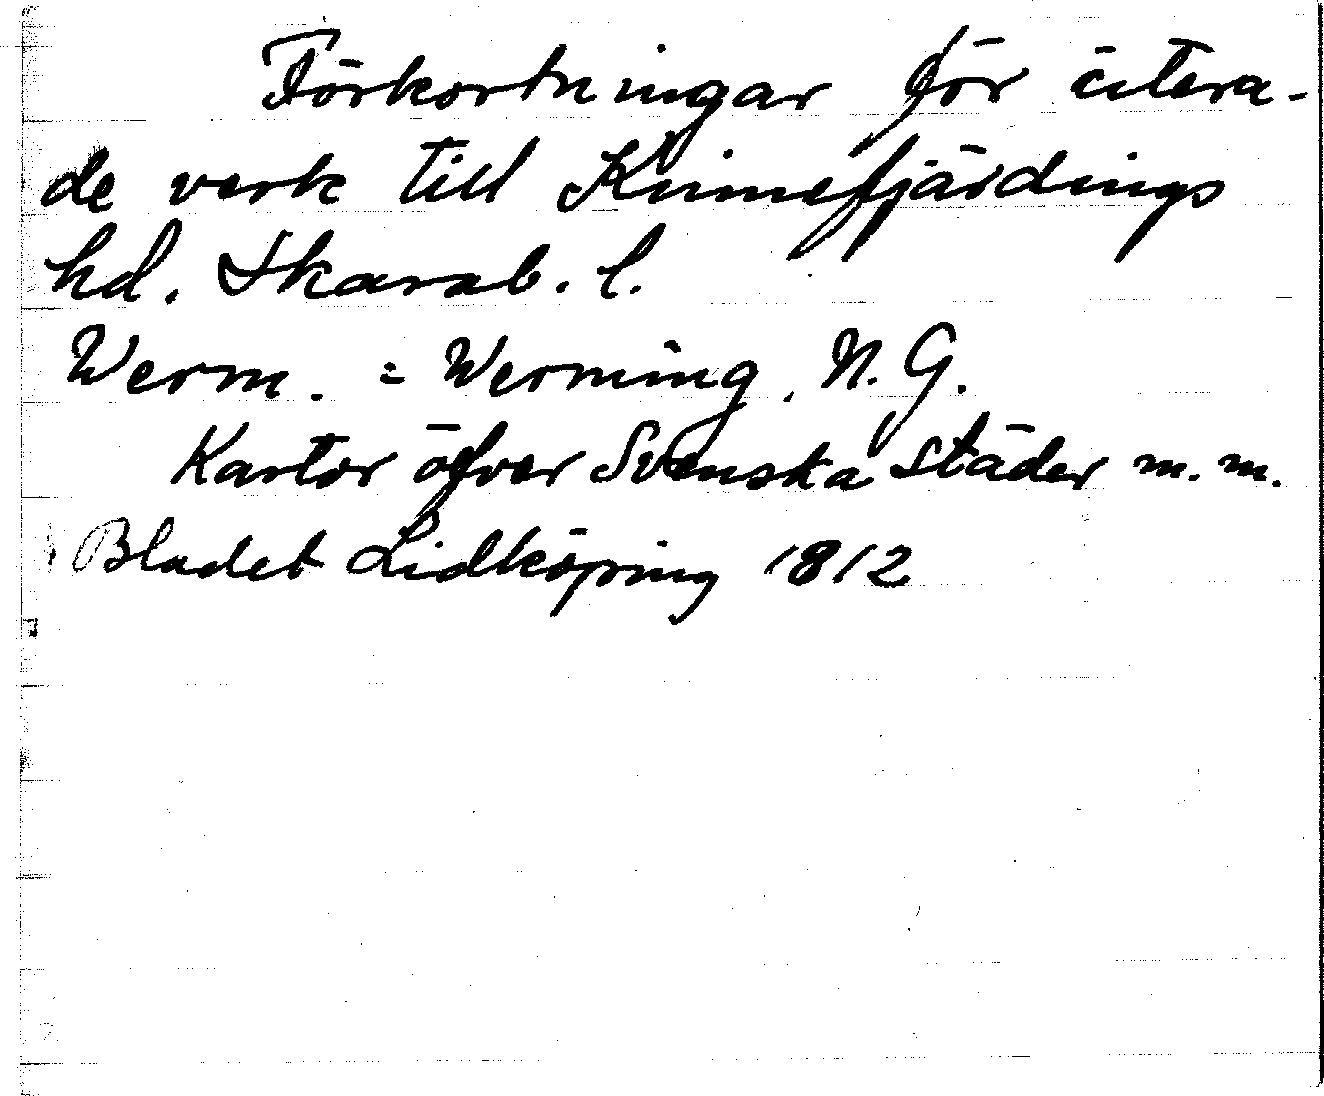 Förkortningar för citera-
de verk till Kinnefjärdings
hd. Skarab. l.
Werm. = Werming, N. G.
Kartor öfver Svenska Städer m. m.
Bladet Lidköping 1812